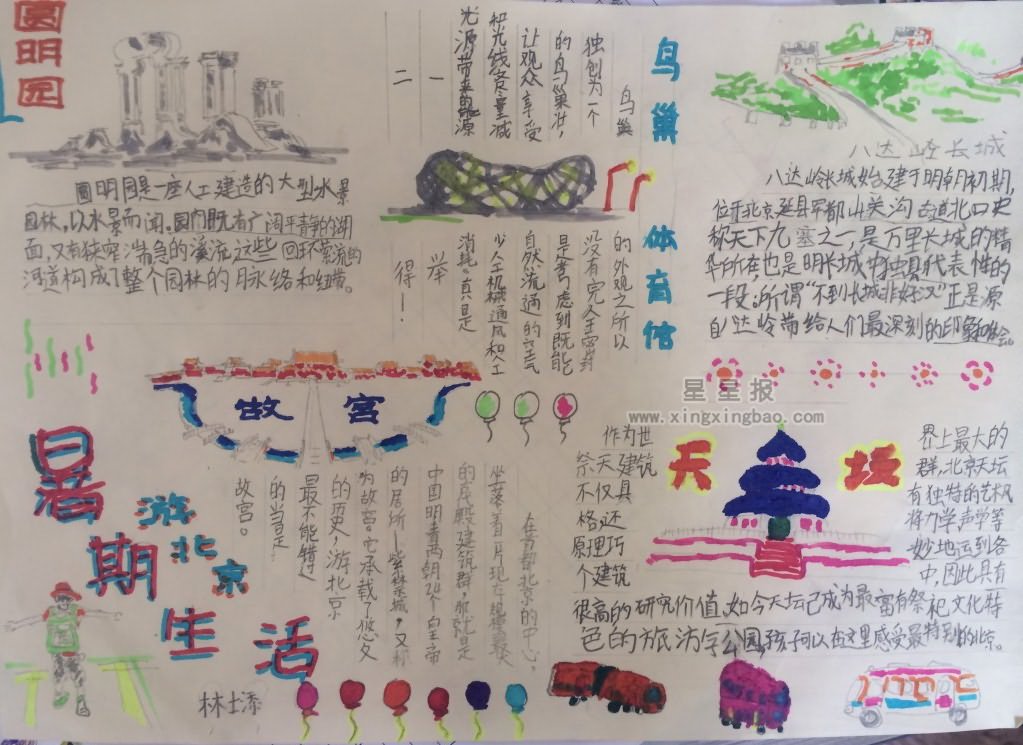 圆明园
圆明园是一座人工建造的大型水景
园林,以水景而闻。园内既有广阔平静的湖
面,又有狭窄湍急的溪流,这些回环萦流的
河道构成了整个园林的脉络和纽带。
鸟巢体育馆
鸟巢
独创为一个
的鸟巢状,
让观众享受
和光线尽量减
光源带来的
一
二
的外观之所以
没有完全
是考虑到既能
自然流通的空气
少人工机械通风和人工
消耗。真是
举
得!
八达岭长城
八达岭长城始建于明朝初期,
位于北京延县军都山关沟古道北口史
称天下九塞之一,是万里长城的精
华所在也是明长城中独具代表性的
一段,所谓“不到长城非好汉”正是源
自八达岭带给人们最深刻的印象和
故宫
在首都北京的中心,
坐落着
的宫殿建筑群,那就是
中国明清两朝24个皇帝
的居所—紫禁城,又称
为故宫。它承载了悠久
的历史,游北京
最不能错过
的当是
故宫。
星星报
www.xingxingbao.com
天坛
作为世
祭天建筑
不仅具
格,还
原理巧
个建筑
界上最大的
群,北京天坛
有独特的艺术风
将力学声学等
妙地运到各
中,因此具有
很高的研究价值,如今天坛已成为最富有祭祀文化特
色的旅游公园,孩子可以在这里感受最特别的北京。
暑期生活
游北京
林士添